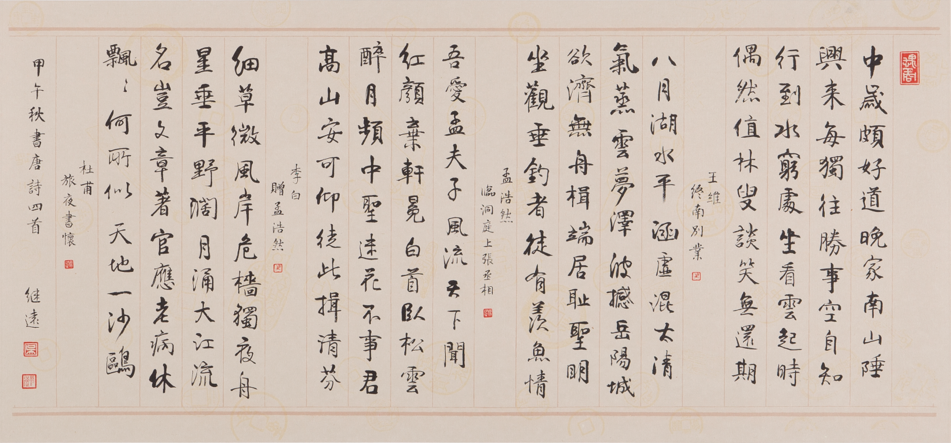 中歲頗好道晚家南山陲
興来每獨往勝事空自知
行到水窮處坐看雲起時
偶然值林叟談笑無還期
王維
終南別業
八月湖水平涵虛混太清
氣蒸雲夢澤波撼岳陽城
欲濟無舟楫端居恥聖明
坐觀垂釣者徒有羨魚情
孟浩然
臨洞庭上張丞相
吾愛孟夫子風流天下聞
紅顏棄軒冕白首臥松雲
醉月頻中聖迷花不事君
高山安可仰徒此揖清芬
李白
贈孟浩然
細草微風岸危檣獨夜舟
星垂平野闊月涌大江流
名豈文章著官應老病休
飄〻何所似天地一沙鷗
杜甫
旅夜書懷
甲午秋書唐詩四首
继遠